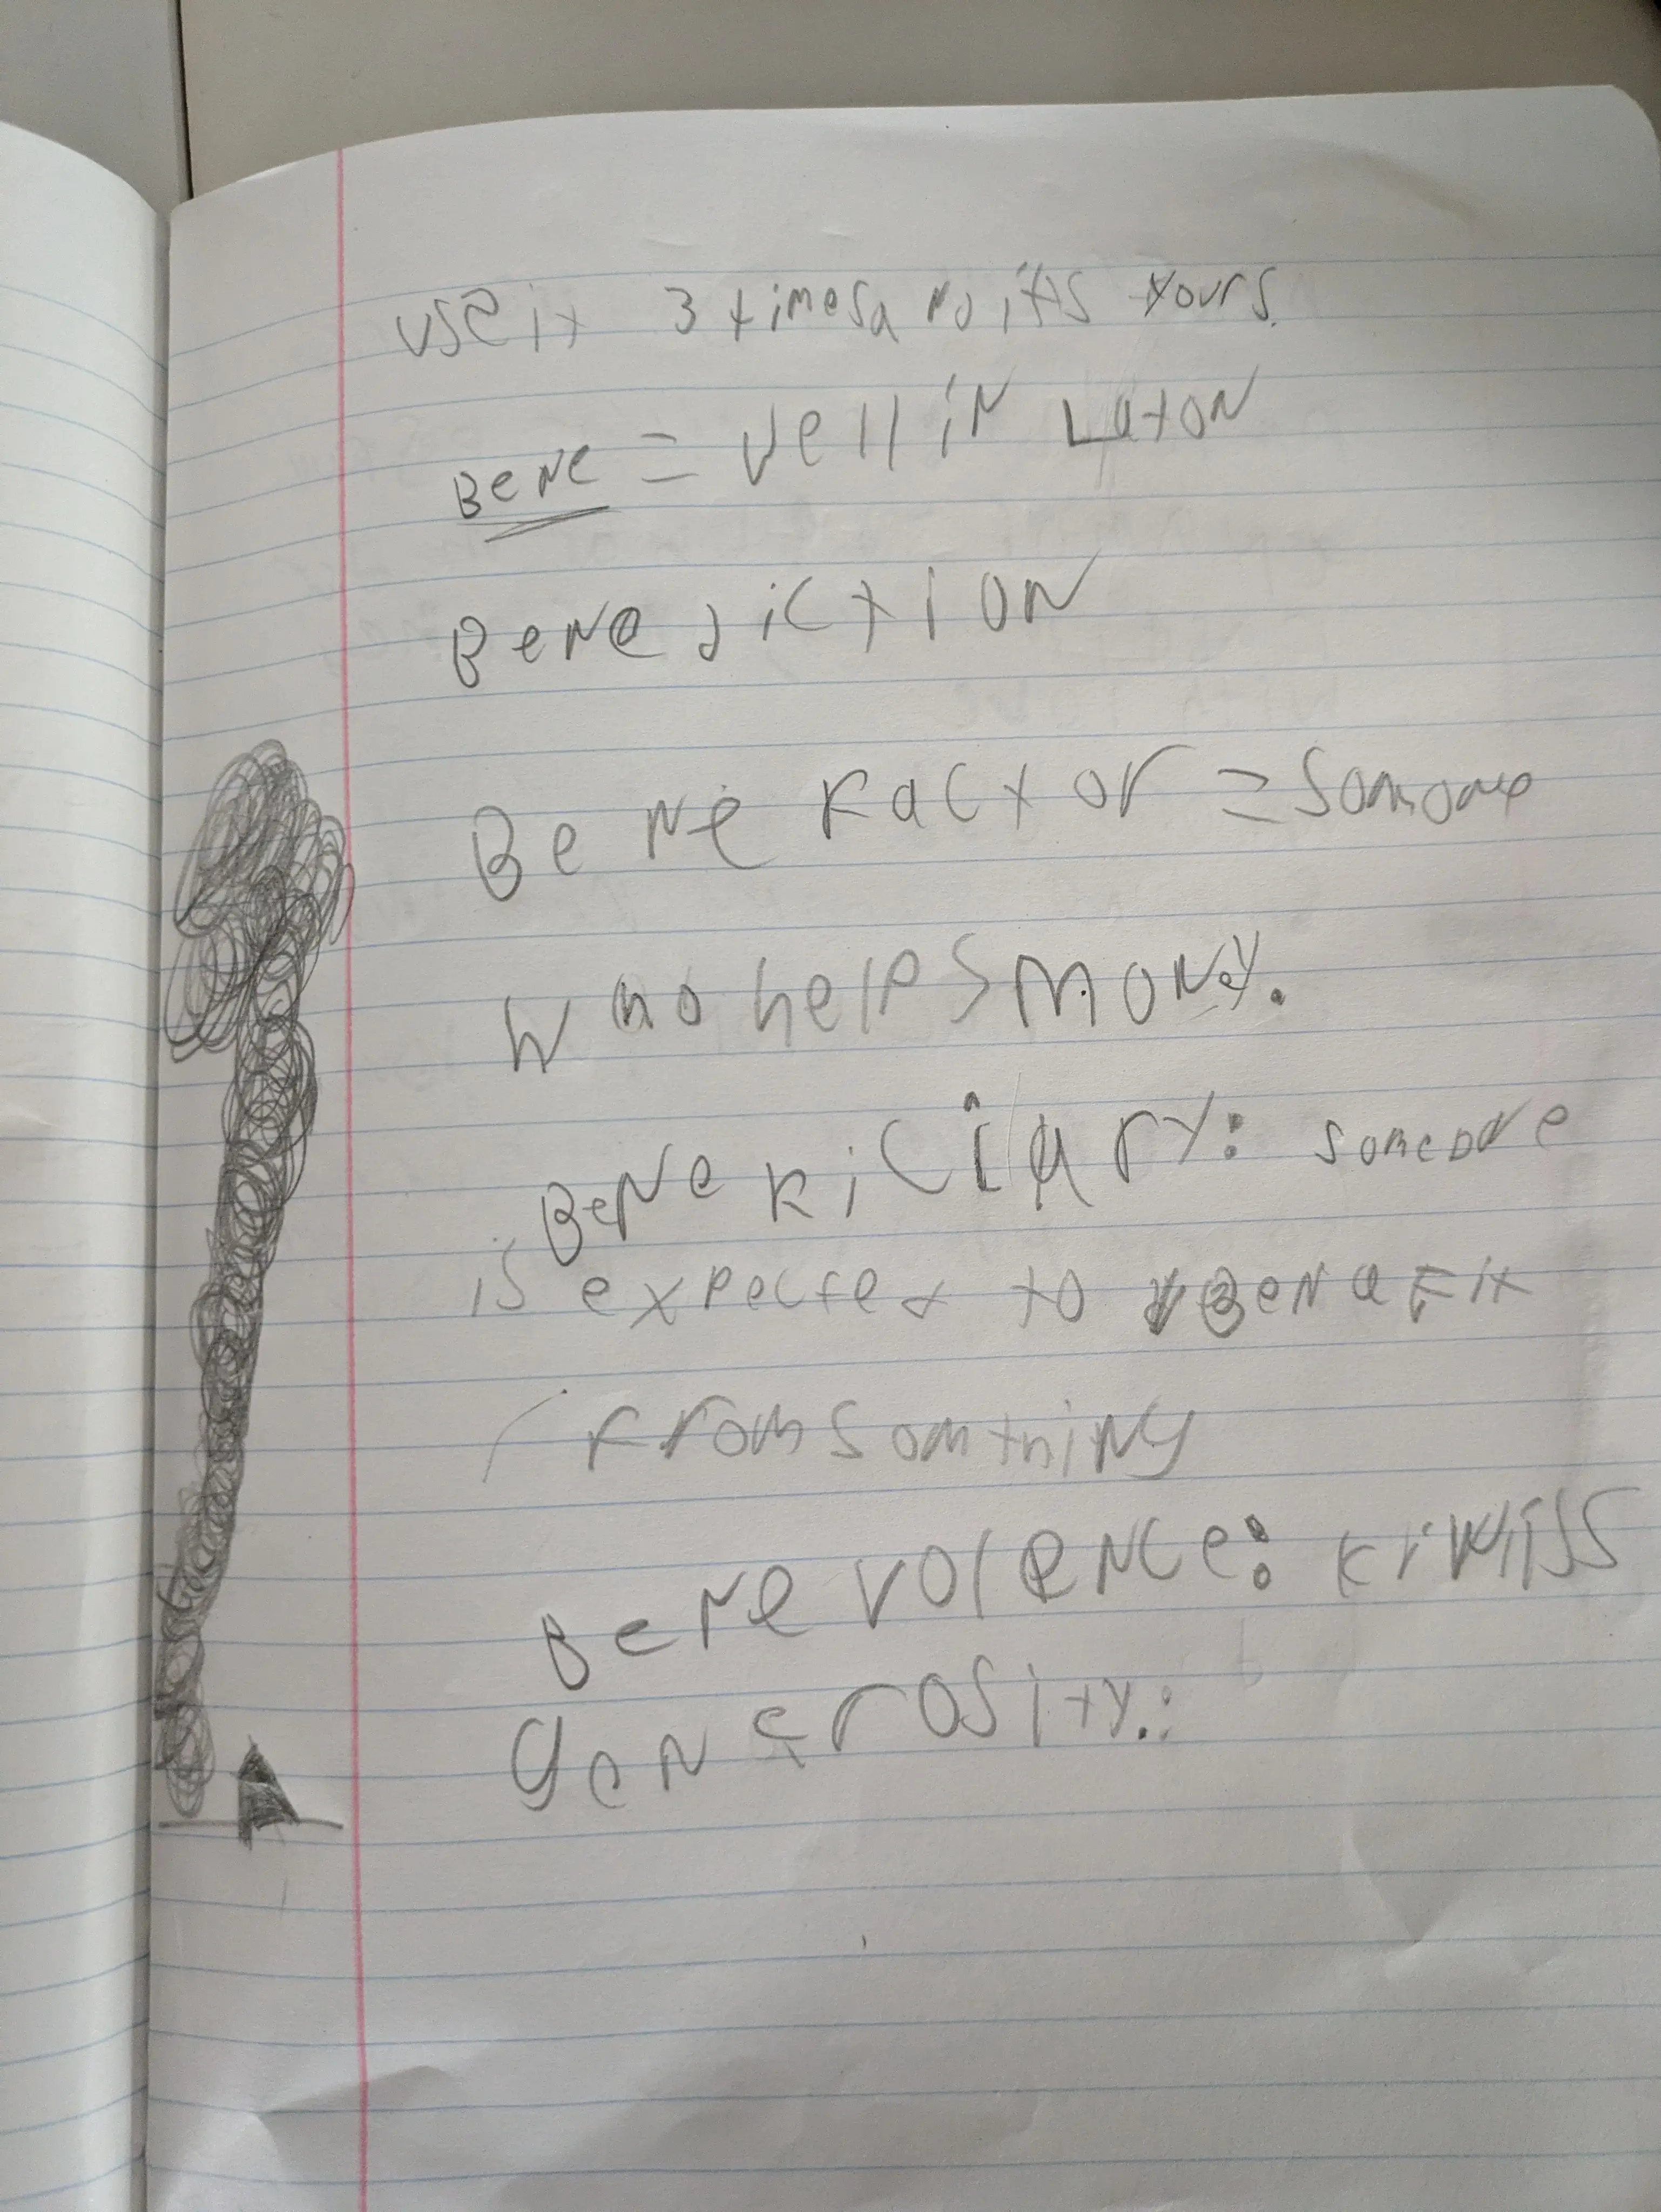 use it 3 times and it's yours.
Bene = well in Laton
Benediction
Bene factor = somone
who helps money.
Beneficiary: someone
is expected to Benafit
from somthing
Benevolence:
generosity.: